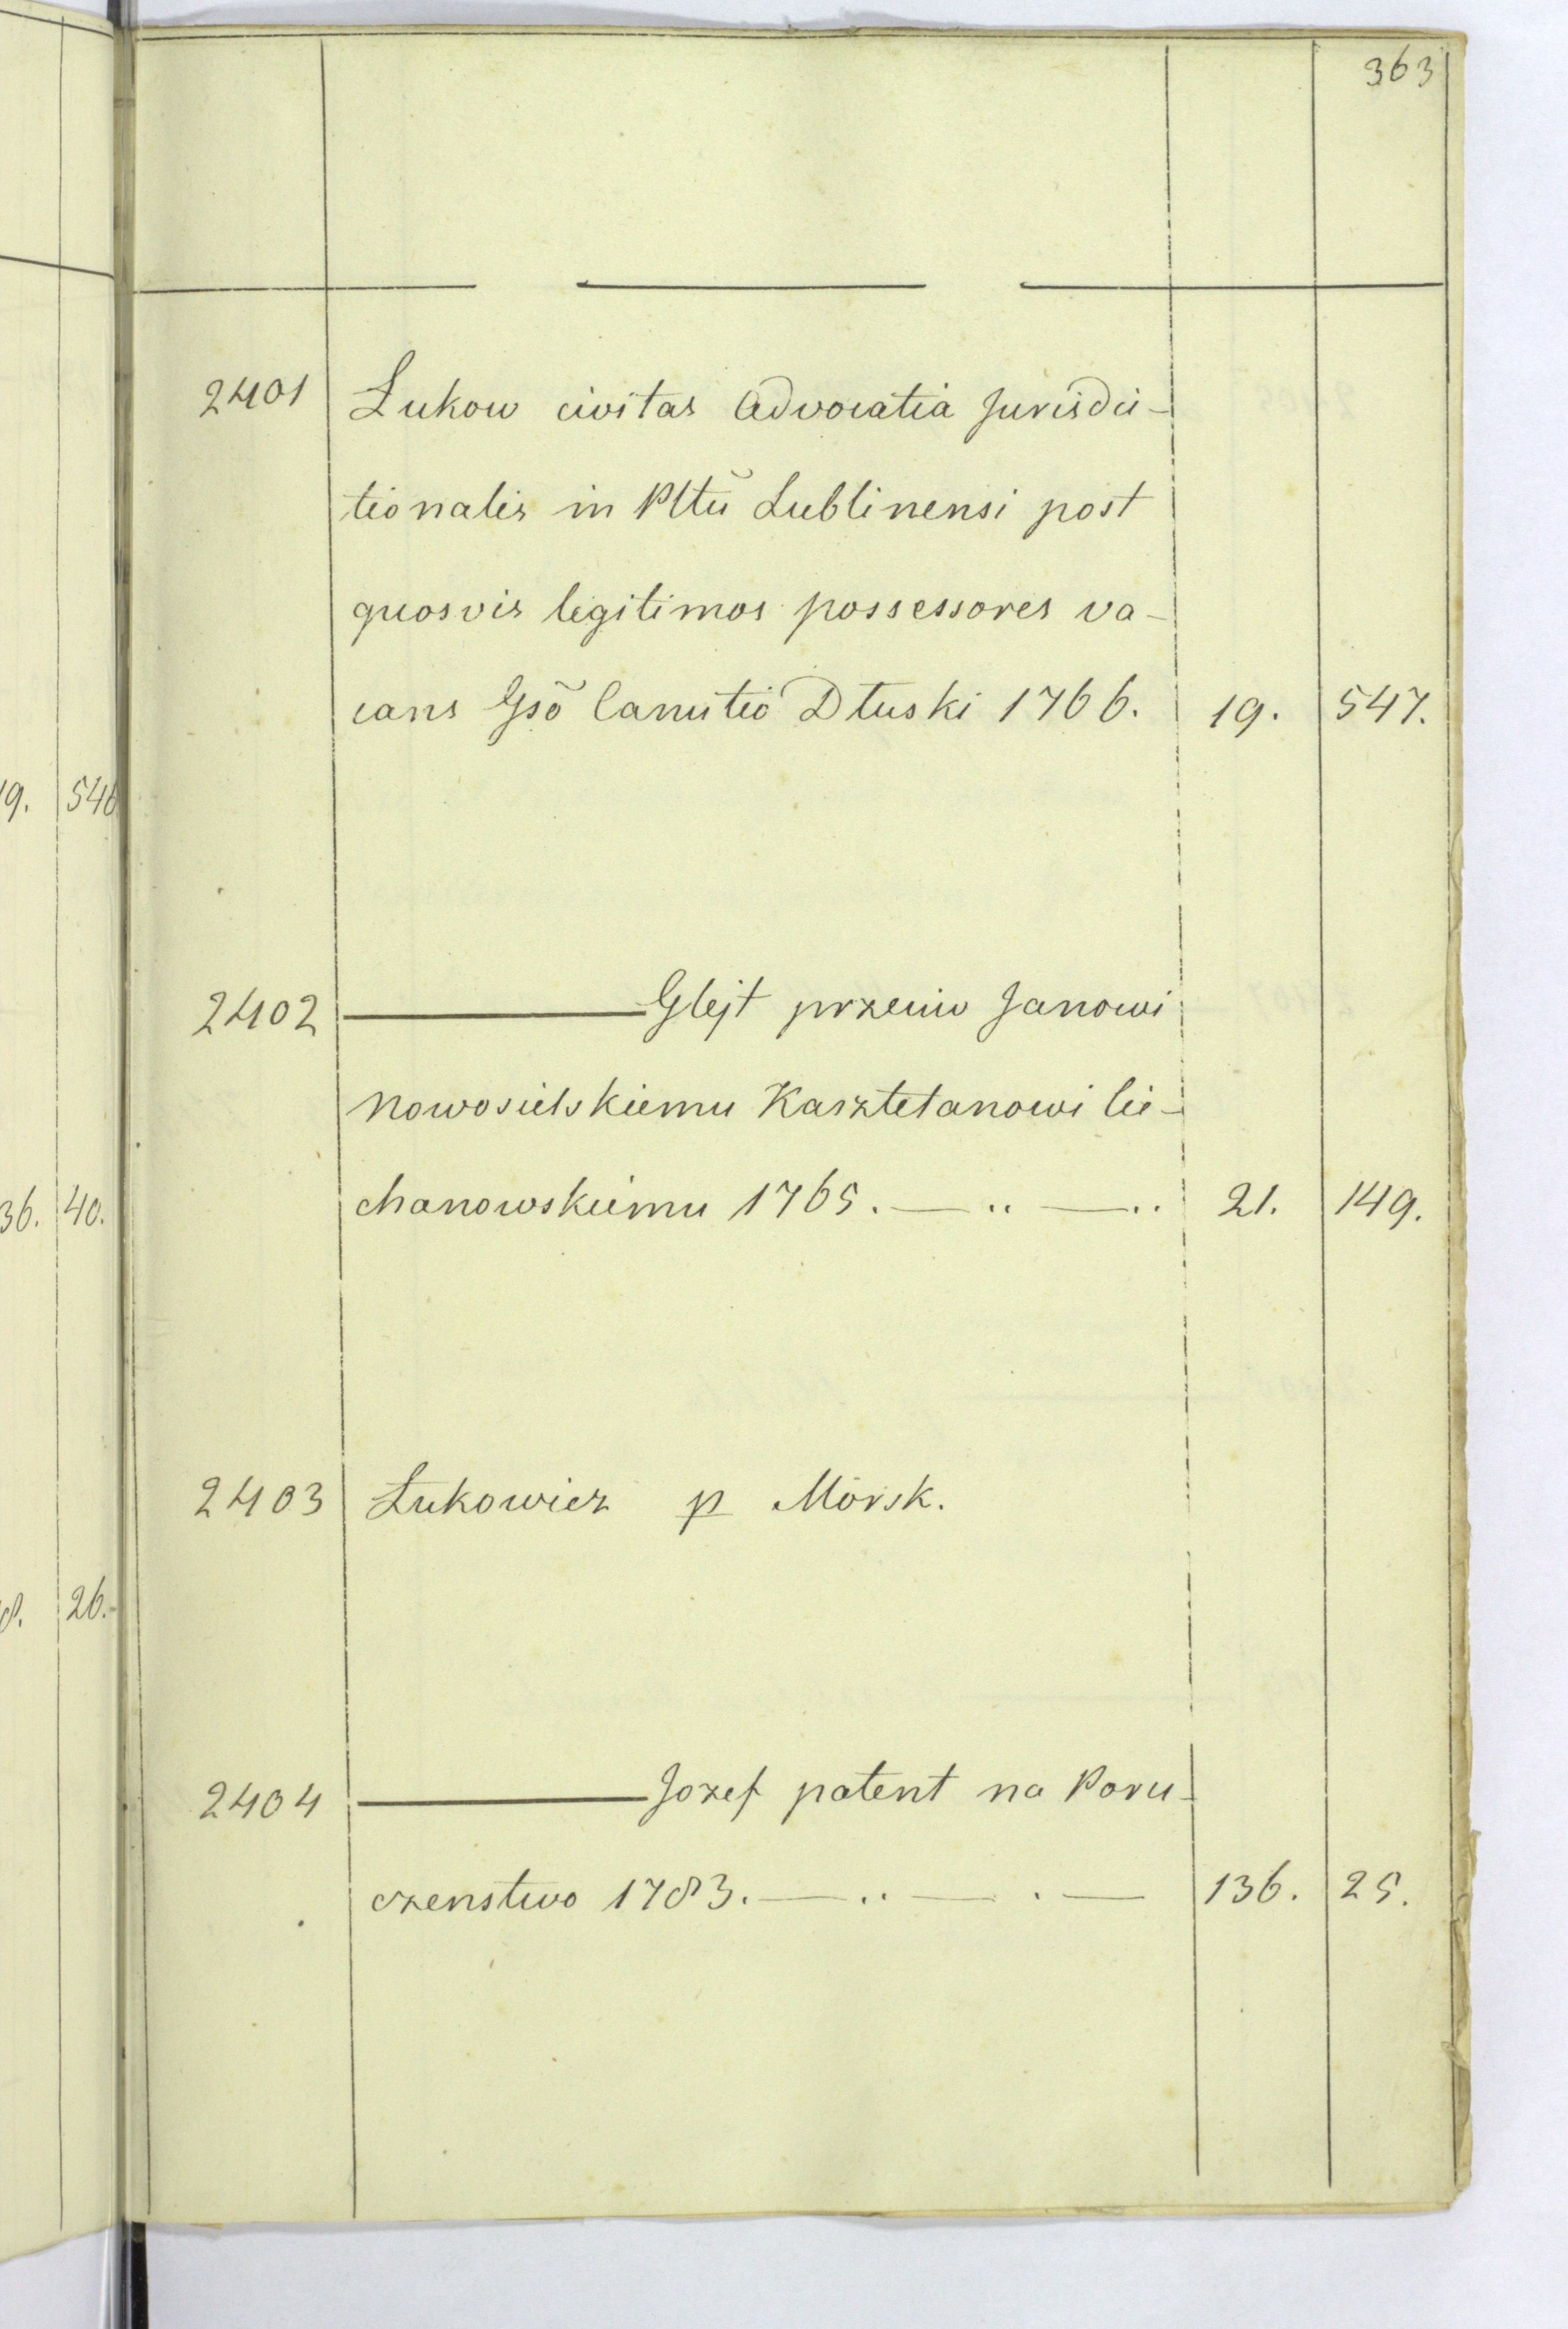 363
2401 Łukow civitas Advocatia Jurisdic-
tionalis in Pltũ Lublinensi post
quosvis legitimos possessores va-
cans Gsõ Canutio Dłuski 1766. 19. 547.
2402 ——— Glejt przeciw Janowi
Nowosielskiemu Kasztelanowi Cie-
chanowskiemu 1765. — .. — .. 21. 149.
2403 Łukowicz p Mórsk.
2404 ——— Jozef patent na Poru-
czenstwo 1783. — .. — . — 136. 25.
9. 546
36. 40.
8. 26.